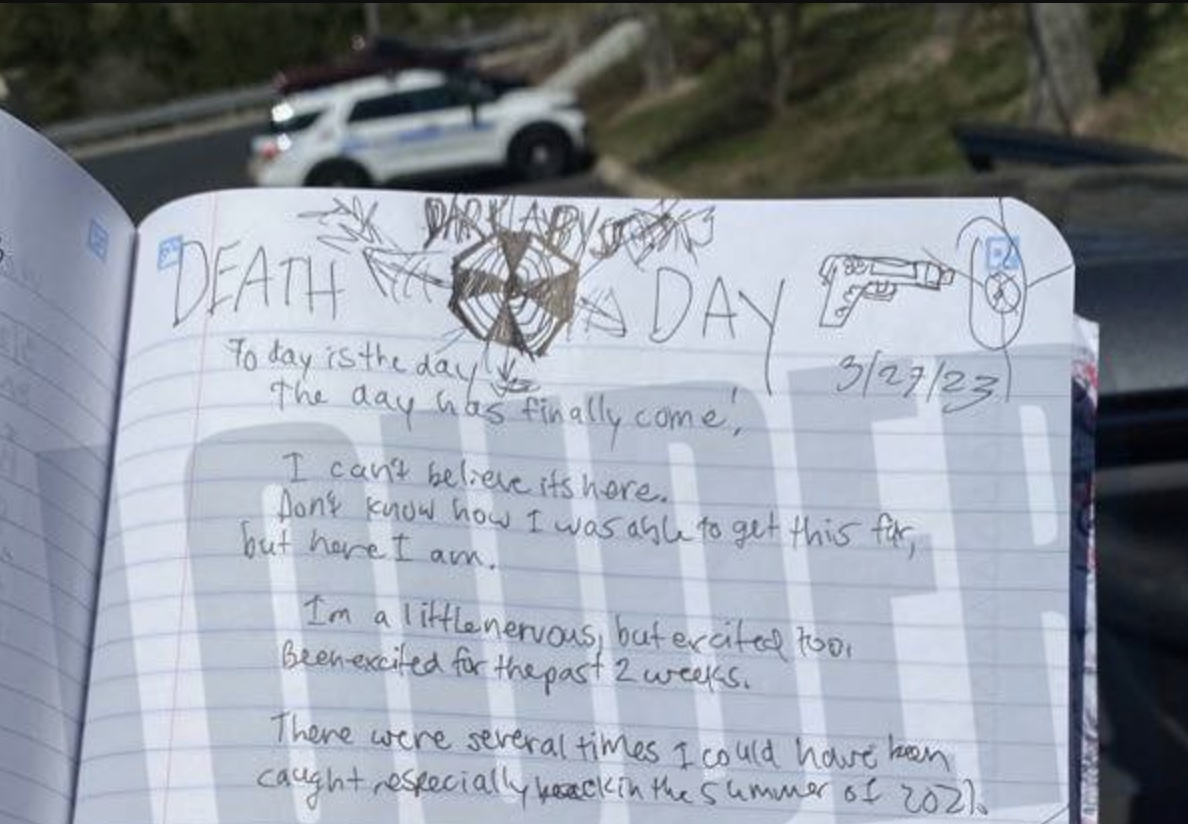 DARK ABYSS
DEATH DAY
3/27/23
Today is the day
The day has finally come!
I can't believe its here.
Don't know how I was able to get this far,
but here I am.
I'm a little nervous, but excited too.
Been excited for the past 2 weeks.
There were several times I could have been
caught, especially back in the summer of 2021.